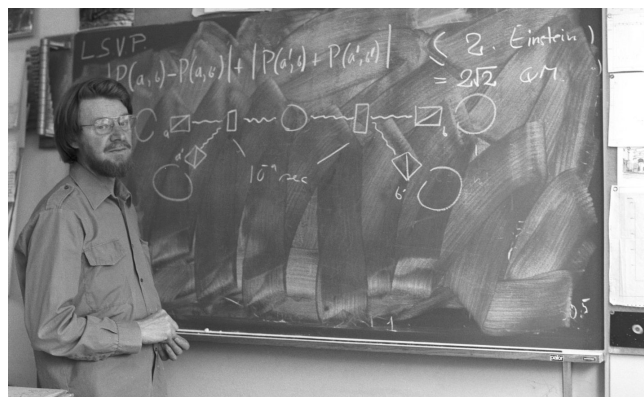 LSVP.
|P(a,b)-P(a,b')|+|P(a',b)+P(a',b')| ≤ 2. Einstein
= 2√2 QM.
a b
a' b'
10⁻⁹ sec
1